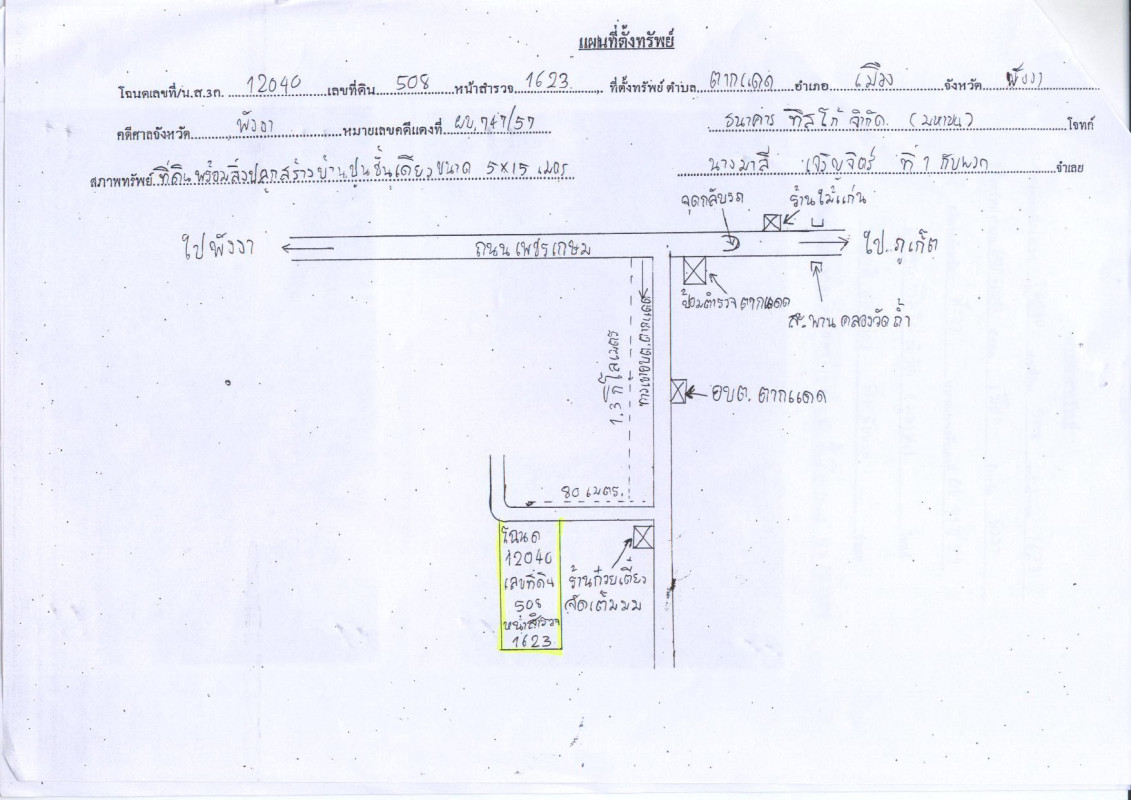 แผนที่ตั้งทรัพย์
โฉนดเลขที่/น.ส.3ก. 12040 เลขที่ดิน 508 หน้าสำรวจ 1623 ที่ตั้งทรัพย์ ตำบล ตากแดด อำเภอ เมือง จังหวัด พังงา
คดีศาลจังหวัด พังงา หมายเลขคดีแดงที่ ผบ.747/57 ธนาคาร ทิสโก้ จำกัด (มหาชน) โจทก์
สภาพทรัพย์ ที่ดินพร้อมสิ่งปลูกสร้างบ้านปูนชั้นเดียวขนาด 5×15 เมตร นางมาลี เจริญจิตร์ ที่ 1 กับพวก จำเลย
จุดกลับรถ ร้านไม้แก่น
ไปพังงา ถนนเพชรเกษม ไป.ภูเก็ต
ป้อมตำรวจตากแดด สะพานคลองวัดถ้ำ
1.3 กิโลเมตร
ทางเทอบต.ตากแดด
อบต. ตากแดด
80 เมตร.
โฉนด
12040
เลขที่ดิน
508
หน้าสำรวจ
1623
ร้านก๋วยเตี๋ยว
จัดเต็มมม